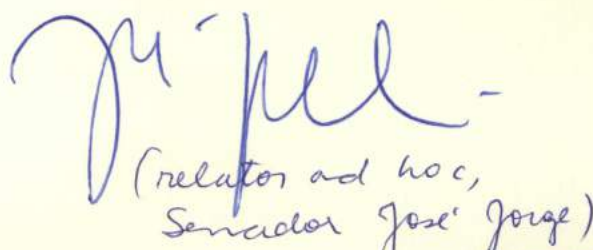 (relator ad hoc,
Senador José Jorge)